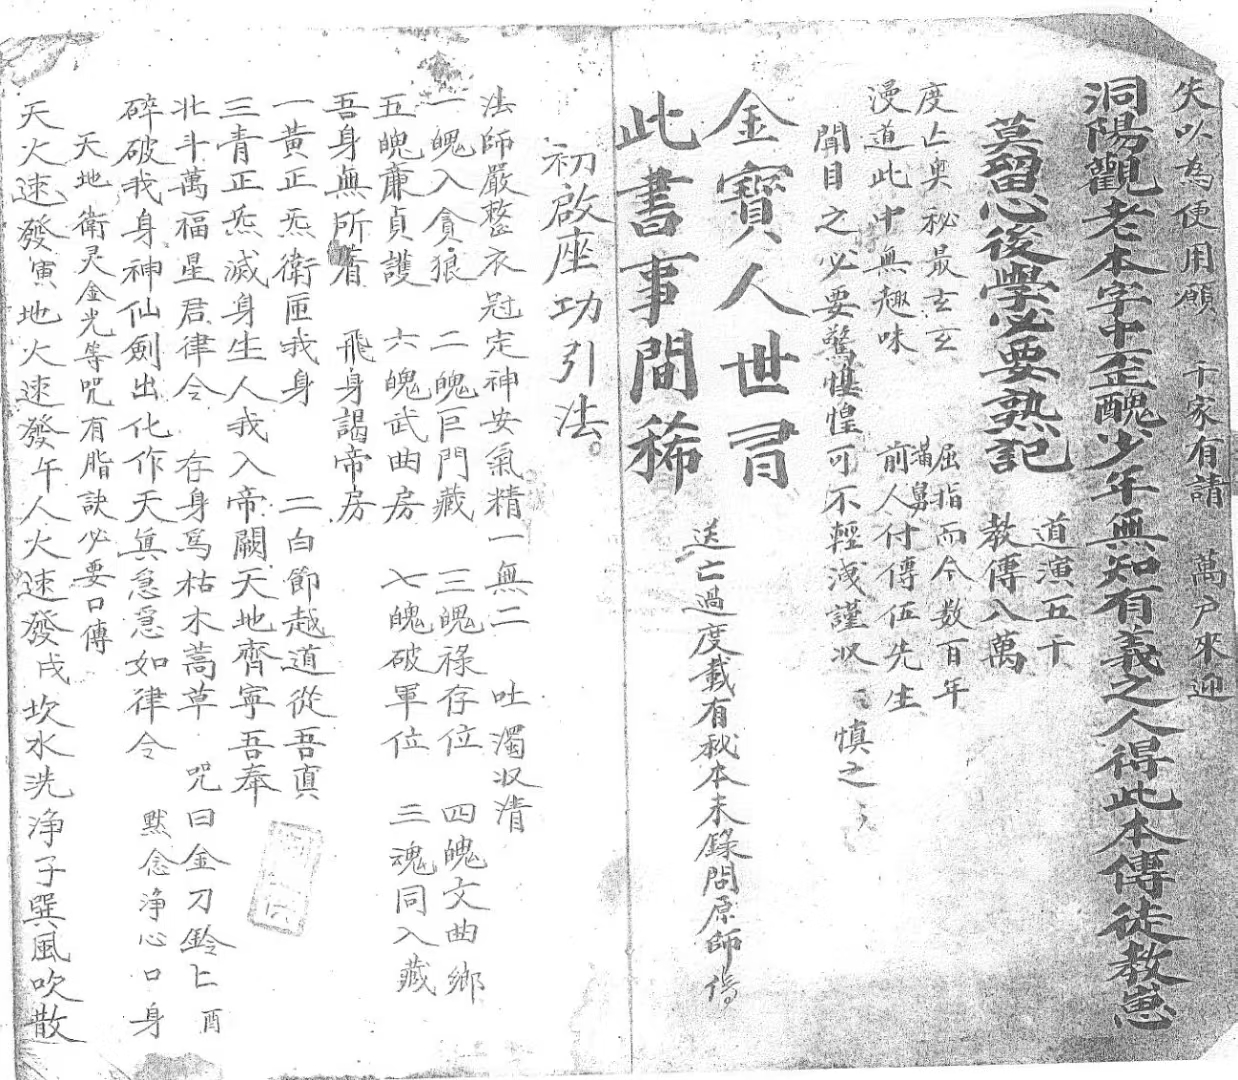 失以為便用願 千家有請 萬户來迎
洞陽觀老本字中歪醜少年無知有義之人得此本傳徒教崽
道演五千
莫留心後學必要熟記 教傳入萬
度亡奥秘最玄玄 屈指而今数百年
漫道此中無趣味 前人付傳伍先生
聞目之必要驚慎惶可不輕洩謹収 慎之
金寶人世留
此書事間稀 送亡過度載有秘本未錄問原師傳
初啟座功引法
法師嚴整衣冠定神安氣精一無二 吐濁収清
一魄入貪狼 二魄巨門藏 三魄祿存位 四魄文曲鄉
五魄亷貞護 六魄武曲房 七魄破軍位 三魂同入藏
吾身無所着 飛身謁帝房
一黃正炁衛匝我身 二白節越道從吾真
三青正炁滅身生人我入帝闕天地齊寧吾奉
北斗萬福星君律令 存身為枯木蒿草 咒曰金刀鈴匕酉
碎破我身神仙劍出化作天眞急急如律令 默念净心口身
天地衛灵金光等咒有脂訣必要口傳
天火速發寅地火速發午人火速發戌坎水洗净子巽風吹散